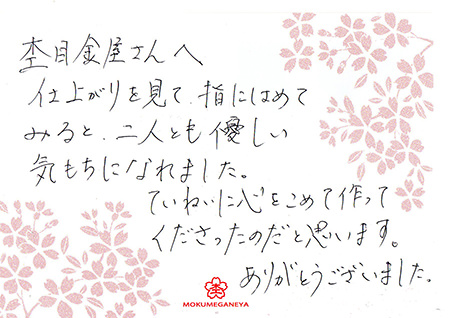 杢目金屋さんへ
仕上がりを見て、指にはめて
みると、二人とも優しい
気もちになれました。
ていねいに心をこめて作って
くださったのだと思います。
ありがとうございました。
MOKUMEGANEYA